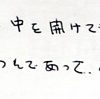 中を開けて
つんであって、